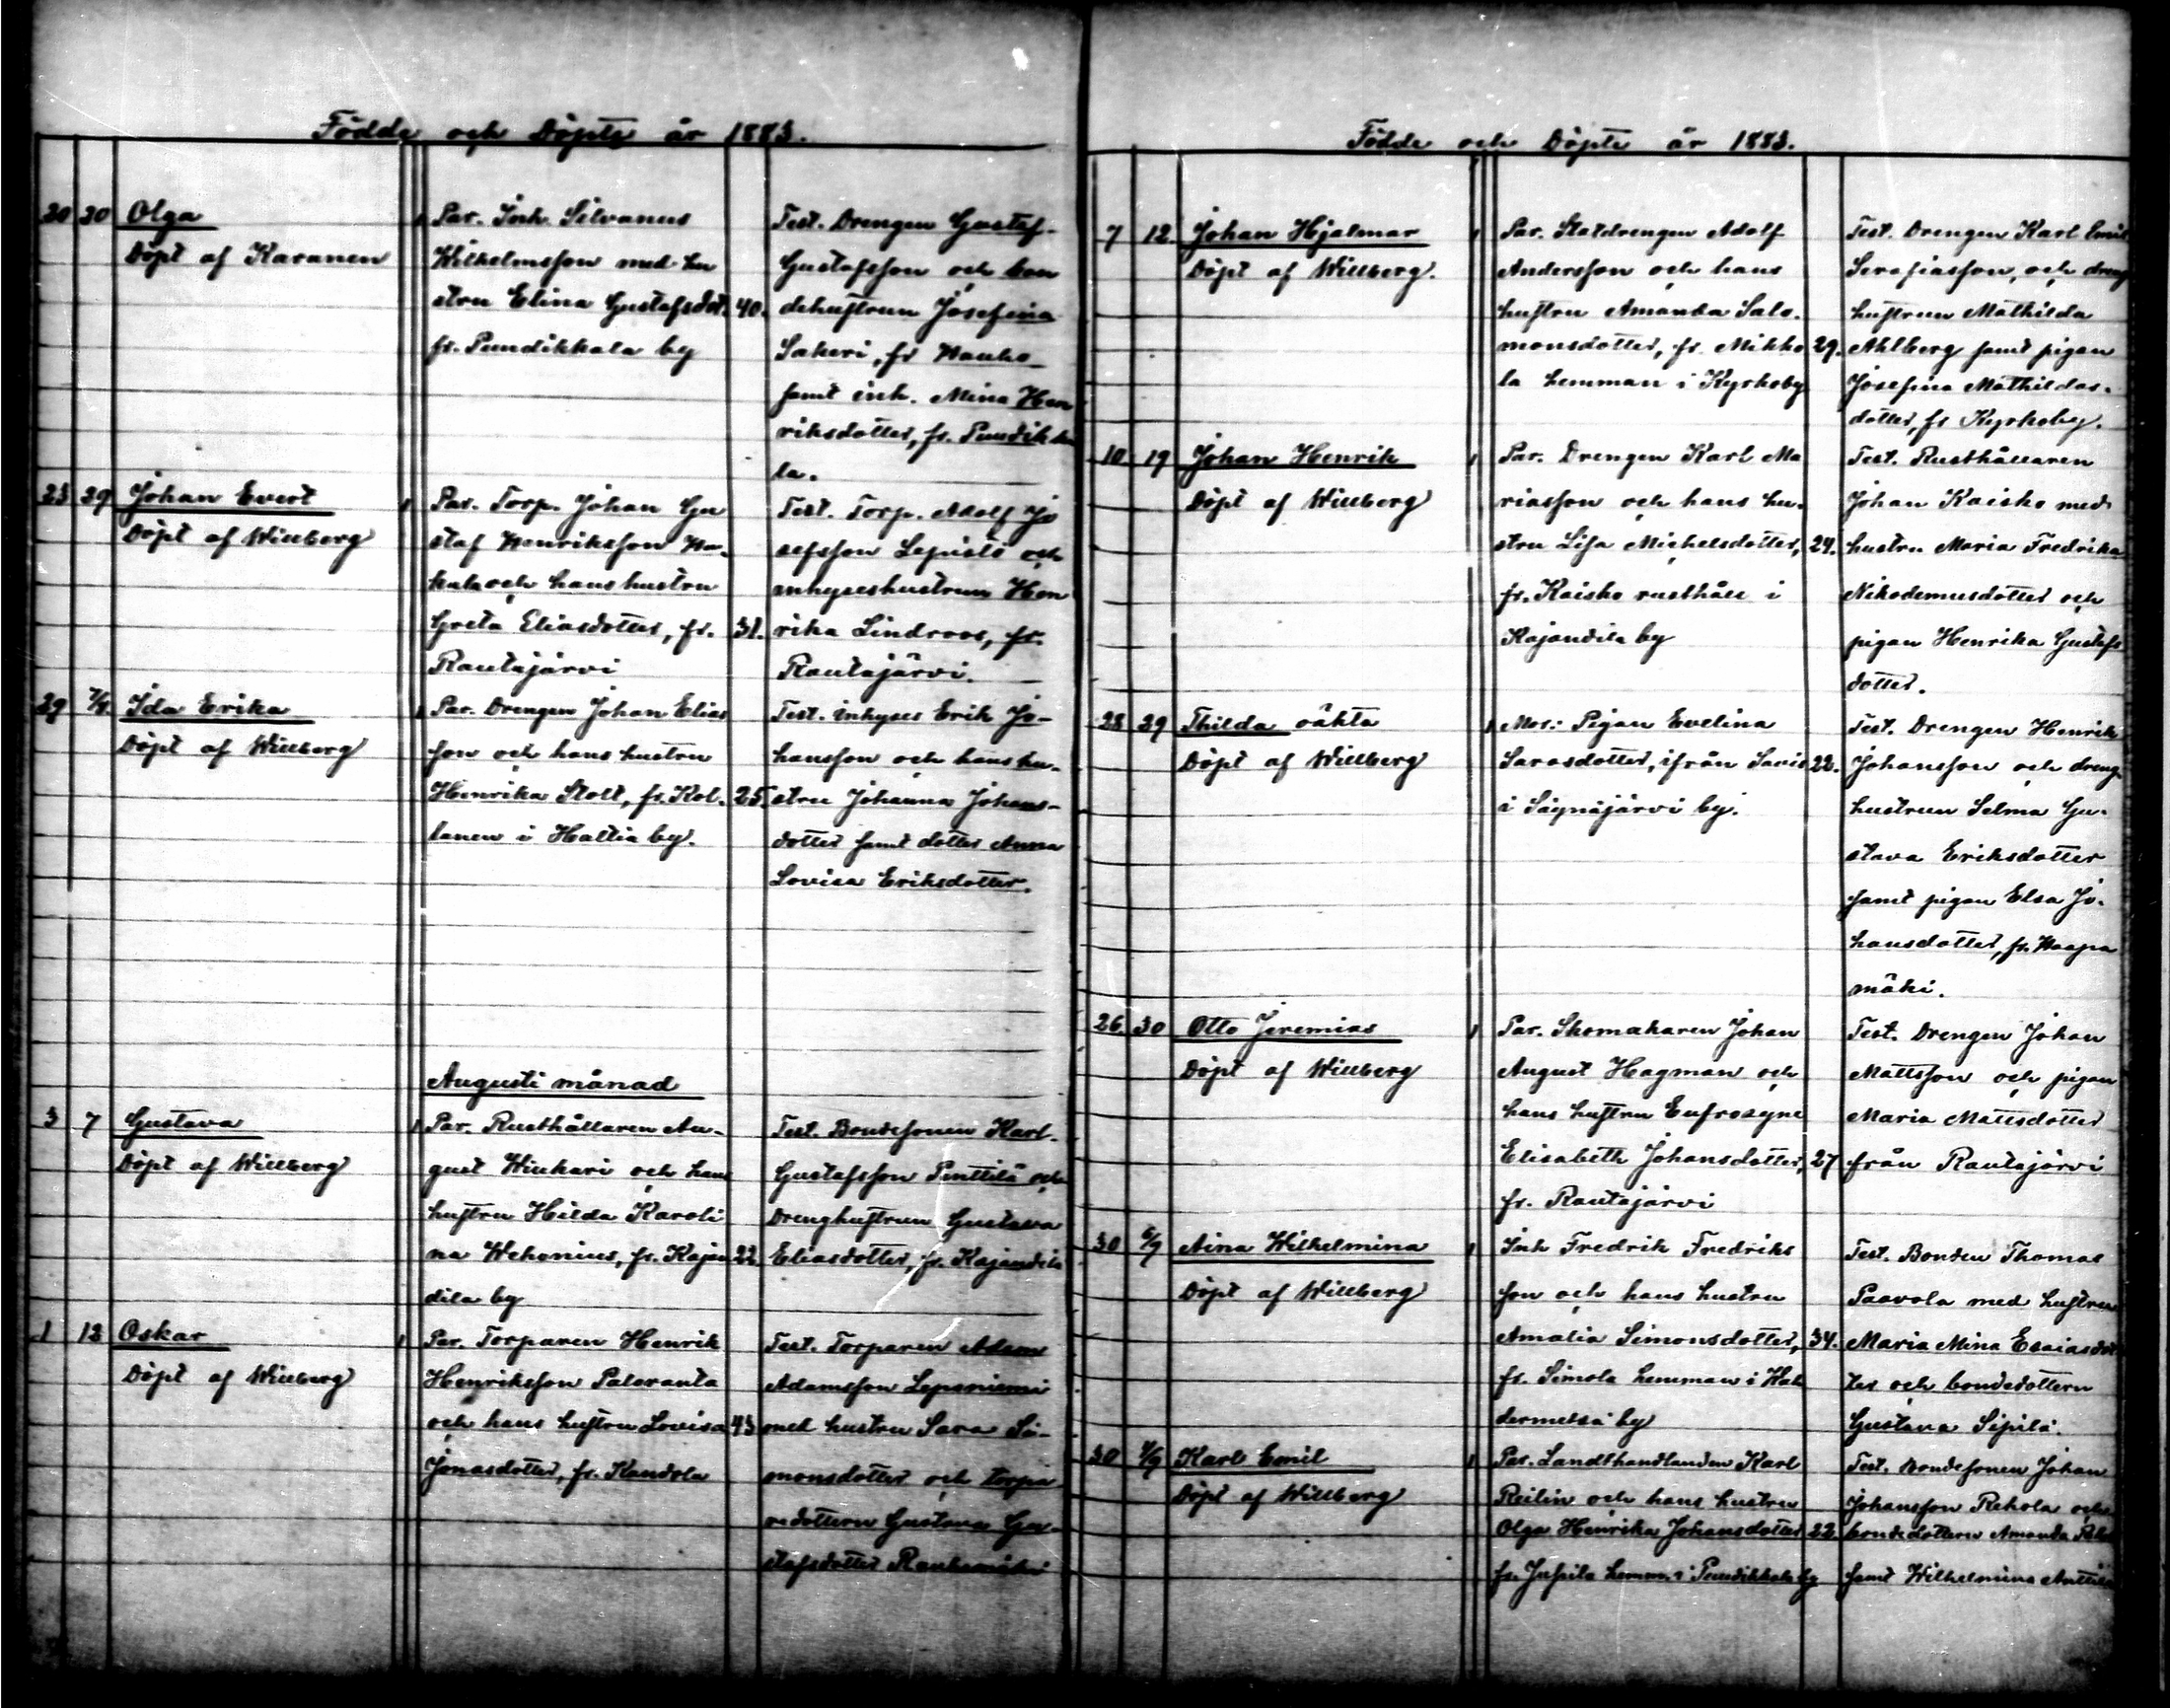 Födde och Döpte år 1883.
20 30 Olga
Döpt af Karanen
Par. Inh. Silvanus
Wilhelmsson med hu
stru Elina Gustafsdot. 40.
fr. Pundikkala by
Test. Drengen Gustaf
Gustafsson och bon
dehustrun Josefina
Sakeri, fr Hauho
samt inh. Mina Hen
riksdotter, fr. Pundikka
la.
23 29 Johan Evert
Döpt af Willberg
Par. Torp. Johan Gu
staf Henriksson
och hans hustru
Greta Eliasdotter, fr. 31.
Rautajärvi
Test. Torp. Adolf Jo
sefsson Lepistö och
inhyseshustrun Hen
rika Lindroos, fr.
Rautajärvi.
29 7/8 Ida Erika
Döpt af Willberg
Par. Drengen Johan Elias
son och hans hustru
Henrika Stolt, fr. Kol- 25.
lanen i Haltia by.
Test. inhyses Erik Jo-
hansson och hans hu-
stru Johanna Johans-
dotter samt dotter Anna
Lovisa Eriksdotter.
Augusti månad
3 7 Gustava
Döpt af Willberg
Par. Rusthållaren Au-
gust Wiukari och hans
hustru Hilda Karoli
na Wehonius, fr. Kajan 22.
dila by
Test. Bondesonen Karl
Gustafsson Penttilä och
Drenghustrun Gustava
Eliasdotter, fr. Kajandila
1 12 Oskar
Döpt af Willberg
Par. Torparen Henrik
Henriksson Paloranta
och hans hustru Lovisa 43
Jonasdotter, fr. Kandola
Test. Torparen Adam
Adamsson Lepeniemi
med hustru Sara Si-
monsdotter och torpa
redottern Gustava Gu-
stafsdotter Rauhamäki
Födde och Döpte år 1883.
7 12 Johan Hjalmar
Döpt af Willberg.
Par. Statdrengen Adolf
Andersson och hans
hustru Amanda Salo-
monsdotter, fr. Mikko 29.
la hemman i Kyrkoby
Test. Drengen Karl Emil
Serafiasson, och dreng
hustrun Mathilda
Ahlberg samt pigan
Josefina Mathildas-
dotter, fr Kyrkoby.
10 19 Johan Henrik
Döpt af Willberg
Par. Drengen Karl Ma
riasson och hans hu-
stru Lisa Michelsdotter, 24.
fr. Kaisko rusthåll i
Kajandila by
Test. Rusthållaren
Johan Kaisko med
hustru Maria Fredrika
Nikodemusdotter och
pigan Henrika Gustafs
dotter.
28 29 Thilda oäkta
Döpt af Willberg
Mor: Pigan Evelina
Sarasdotter, ifrån Saris 22.
i Säynäjärvi by.
Test. Drengen Henrik
Johansson och dreng-
hustrun Selma Gu-
stava Eriksdotter
samt pigan Elsa Jo-
hansdotter, fr. Haapa
mäki.
26 30 Otto Jeremias
Döpt af Willberg
Par. Skomakaren Johan
August Hagman och
hans hustru Eufrosyne
Elisabeth Johansdotter, 27
fr. Rautajärvi
Test. Drengen Johan
Mattsson och pigan
Maria Mattsdotter
från Rautajärvi
30 6/9 Aina Wilhelmina
Döpt af Willberg
Inh Fredrik Fredriks
son och hans hustru
Amalia Simonsdotter, 34.
fr. Simola hemman i Hal
dermetsä by
Test. Bonden Thomas
Paavola med hustru
Maria Mina Esaiasdot
ter och bondedottern
Gustava Sipilä.
30 9/9 Karl Emil
Döpt af Willberg
Par. Landthandlanden Karl
Reilin och hans hustru
Olga Henrika Johansdotter 22.
fr. Jussila hemm. i Pundikkala by
Test. Bondesonen Johan
Johansson Rekola och
bondedottern Amanda
samt Wilhelmina Anttila